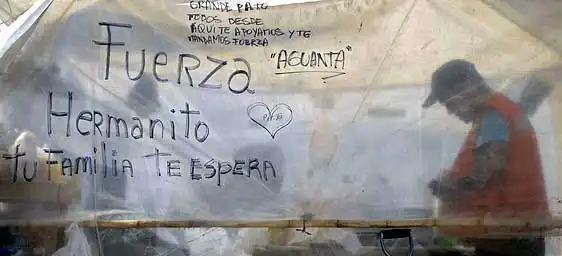 GRANDE PATO
TODOS DESDE
AQUI TE APOYAMOS Y TE
MANDAMOS FUERZA
"AGUANTA"
FUERZA
HERMANITO
TU FAMILIA TE ESPERA